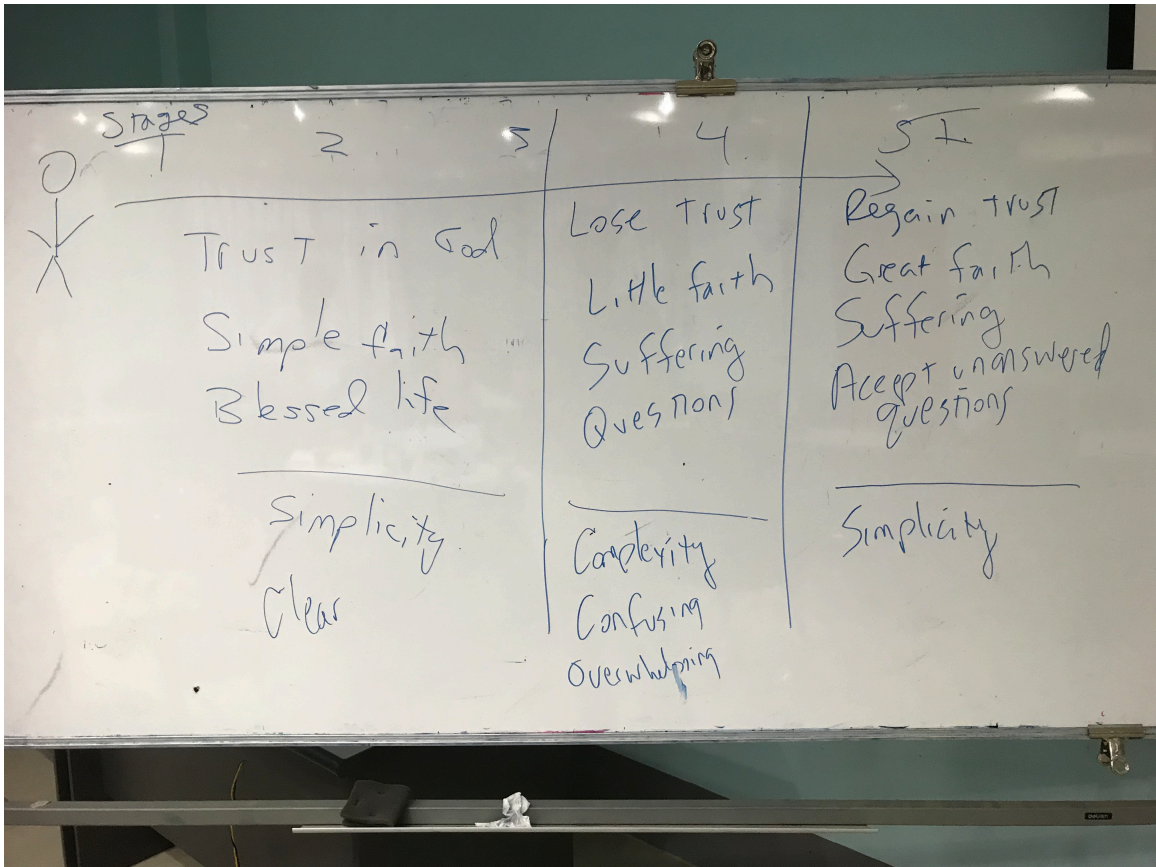 Stages
1 2 3
Trust in God
Simple faith
Blessed life
Simplicity
Clear
4
Lose trust
Little faith
Suffering
Questions
Complexity
Confusing
Overwhelming
5
Regain trust
Great faith
Suffering
Accept unanswered
questions
Simplicity
deli